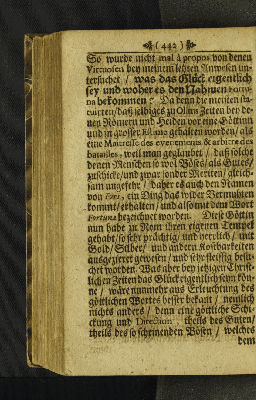 ( 442 )
So wurde nicht mal à propos von denen
Virtuosen bey meinem letzten Anwesen un-
tersuchet / was das Glück eigentlich
sey und woher es den Nahmen Fortu-
na bekommen? Da denn die meisten sta-
tuirten / daß selbiges zu Olims Zeiten bey de-
nen Römern und Heiden vor eine Göttinn
und in grosser Estime gehalten worden / als
eine Maitresse des evenements & arbitre des
batailles, weil man geglaubet / daß solche
denen Menschen so wol Böse / als Gutes /
zuschicke / und zwar sonder Meriten / gleich-
sam ungefehr / daher es auch den Namen
von Fors, ein Ding das wider Vermuhten
kommt / erhalten / und also mit dem Wort
Fortuna bezeichnet worden. Diese Göttin
nun habe zu Rom ihren eigenen Tempel
gehabt / so sehr prächtig / und herrlich / mit
Gold / Silber / und andern Kostbarkeiten
ausgezieret gewesen / und sehr fleissig besu-
cht worden. Was aber bey jetzigen Christ-
lichen Zeiten das Glück eigentlich seyn kön-
ne / wäre nunmehr aus Erleuchtung des
göttlichen Wortes besser bekant / nemlich
nichts anders / denn eine göttliche Schi-
ckung und Direction, theils des Guten /
theils des so scheinenden Bösen / welches
dem